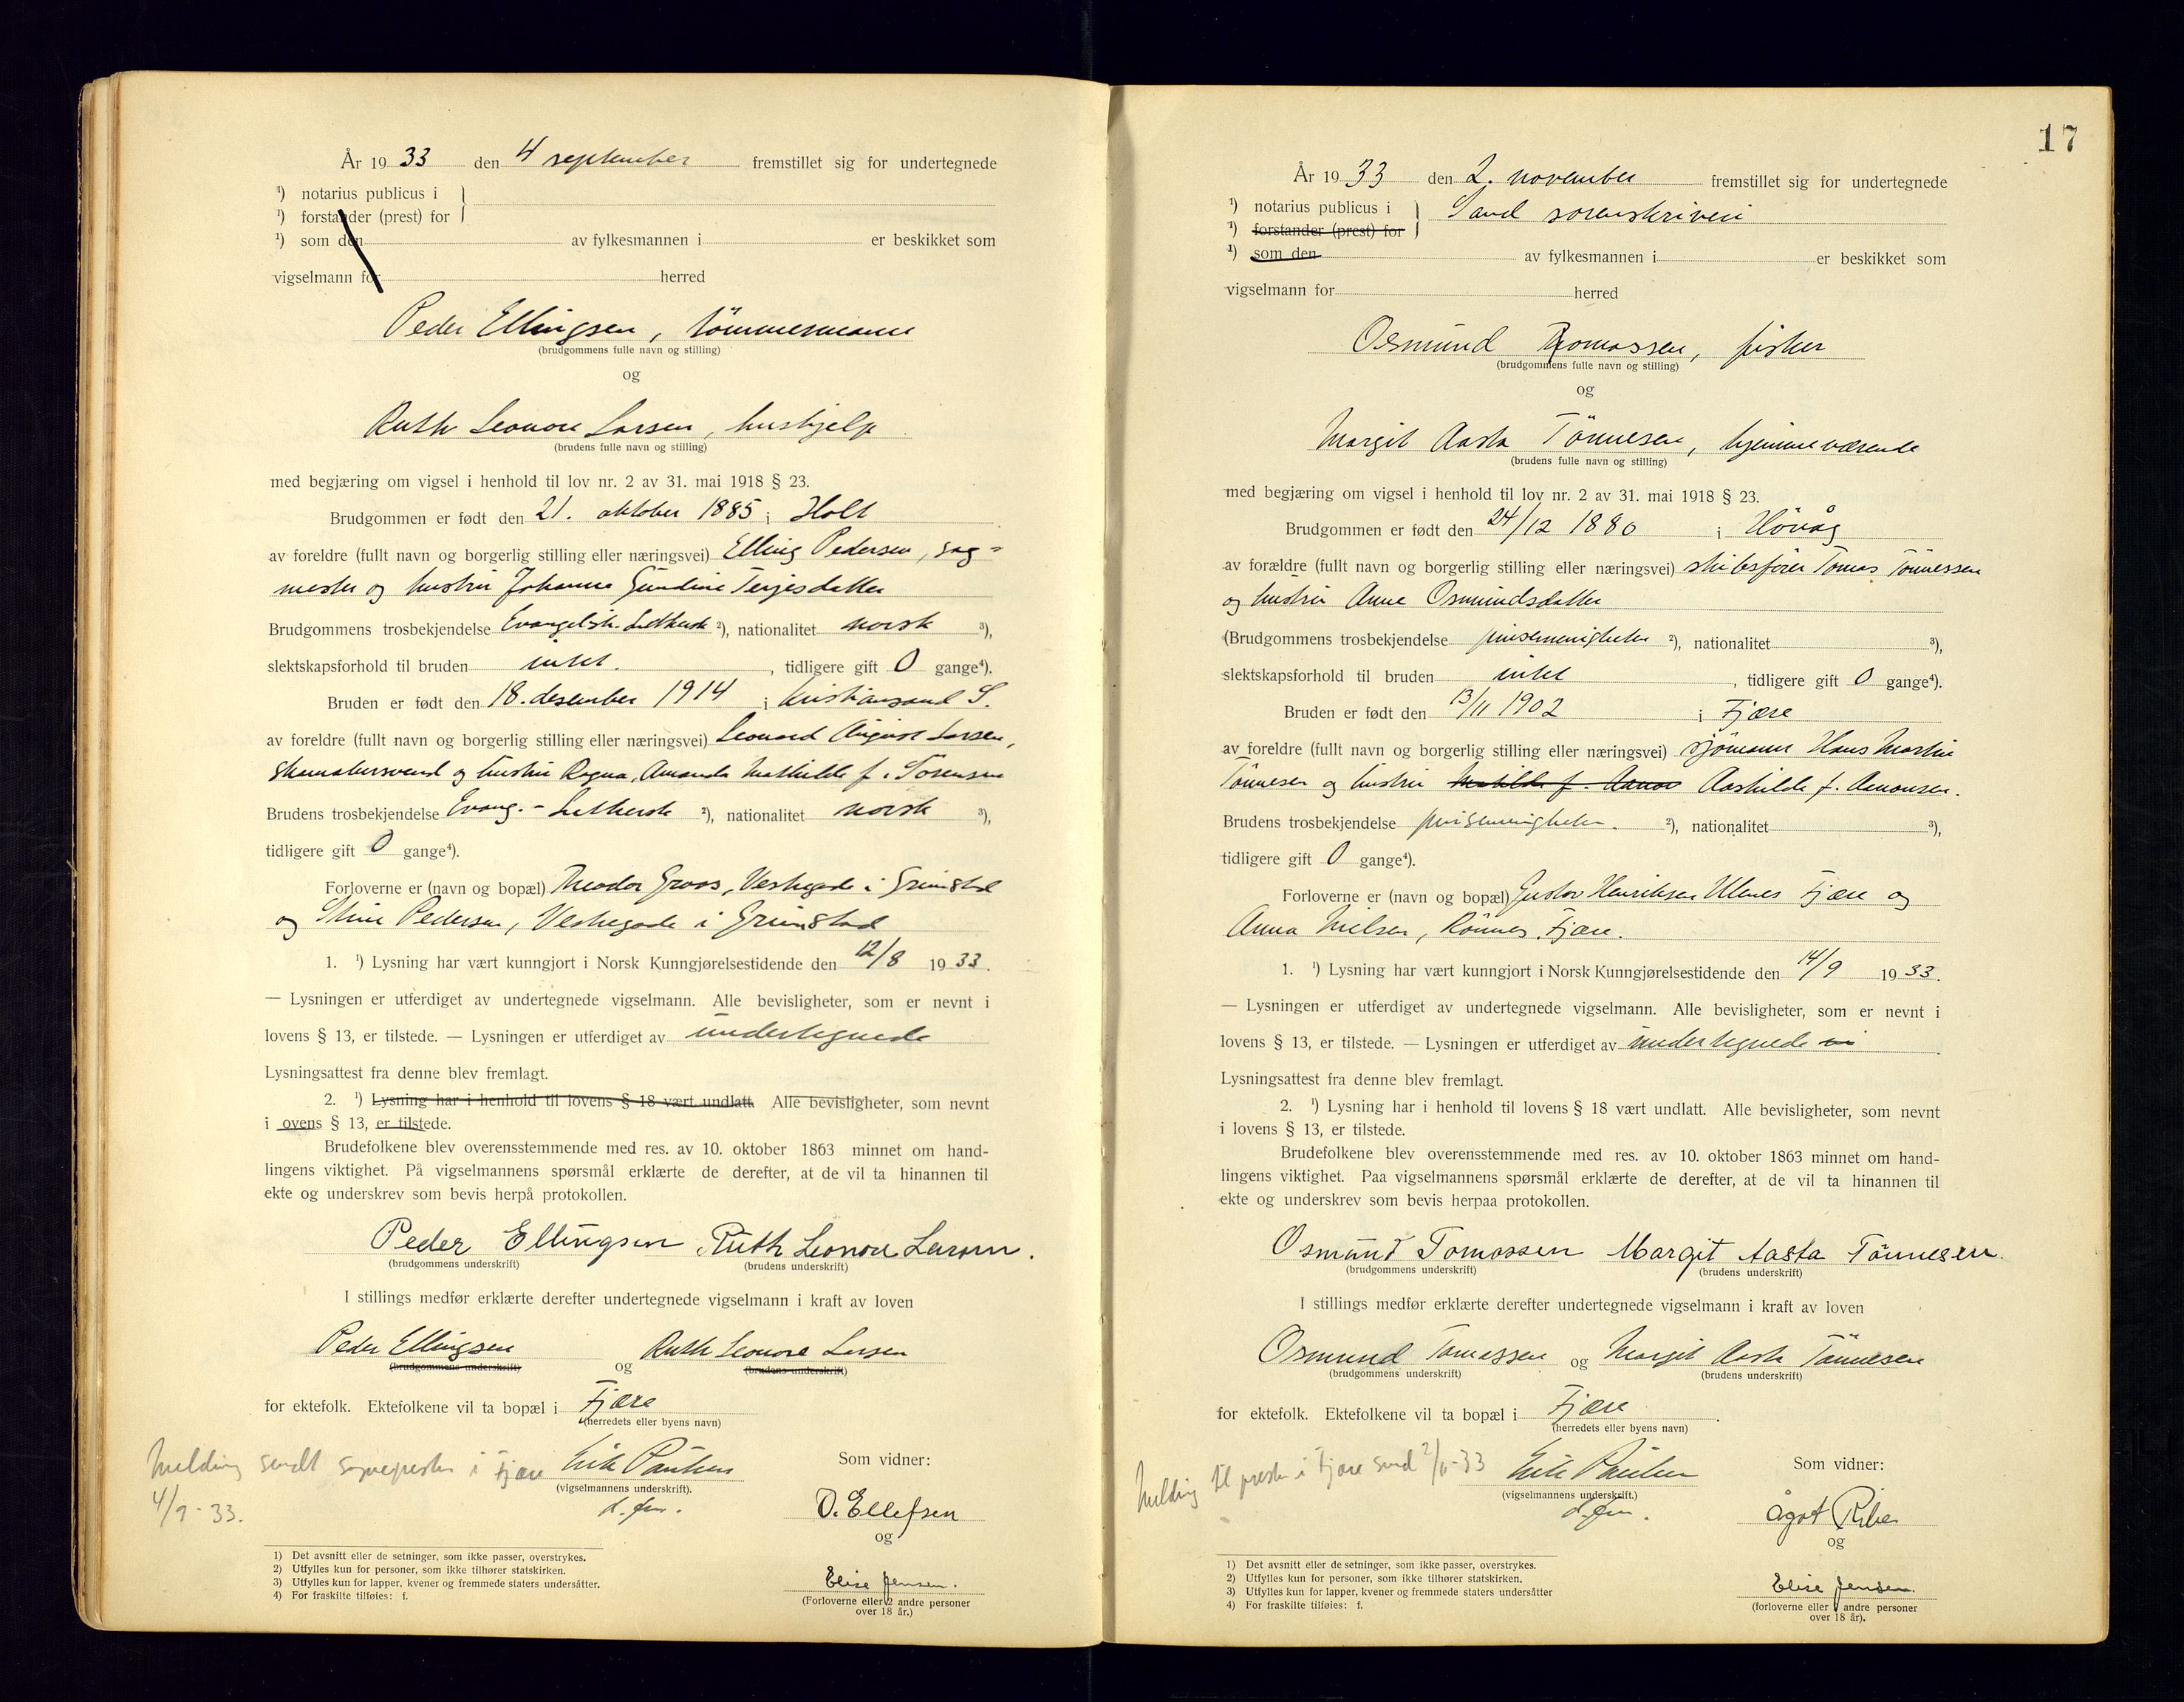 År 1933 den 4 september fremstillet sig for undertegnede
¹) notarius publicus i
¹) forstander (prest) for
¹) som den av fylkesmannen i er beskikket som
vigselmann for herred
Peder Ellingsen, tömmermann
(brudgommens fulle navn og stilling)
og
Ruth Leonore Larsen, hushjelp
(brudens fulle navn og stilling)
med begjæring om vigsel i henhold til lov nr. 2 av 31. mai 1918 § 23.
Brudgommen er født den 21. oktober 1885 i Holt
av foreldre (fullt navn og borgerlig stilling eller næringsvei) Elling Pedersen, sag-
mester og hustru Johanne Gundine Terjesdatter
Brudgommens trosbekjendelse Evangelisk-Luthersk ²), nationalitet norsk ³),
slektskapsforhold til bruden intet. , tidligere gift 0 gange⁴).
Bruden er født den 18. desember 1914 i Kristiansand S.
av foreldre (fullt navn og borgerlig stilling eller næringsvei) Leonard August Larsen,
skomakersvend og hustru Ragna, Amanda Mathilde f. Sörensen
Brudens trosbekjendelse Evang.-Luthersk ²), nationalitet norsk ³),
tidligere gift 0 gange⁴).
Forloverne er (navn og bopæl) Theodor Groos, Vestregade i Grimstad
og Stine Pedersen, Vestregade i Grimstad
1. ¹) Lysning har vært kunngjort i Norsk Kunngjørelsestidende den 12/8 1933.
— Lysningen er utferdiget av undertegnede vigselmann. Alle bevisligheter, som er nevnt i
lovens § 13, er tilstede. — Lysningen er utferdiget av undertegnede
Lysningsattest fra denne blev fremlagt.
2. ¹) Lysning har i henhold til lovens § 18 vært undlatt. Alle bevisligheter, som nevnt
i ovens § 13, er tilstede.
Brudefolkene blev overensstemmende med res. av 10. oktober 1863 minnet om hand-
lingens viktighet. På vigselmannens spørsmål erklærte de derefter, at de vil ta hinannen til
ekte og underskrev som bevis herpå protokollen.
Peder Ellingsen Ruth Leonore Larsen.
(brudgommens underskrift) (brudens underskrift)
I stillings medfør erklærte derefter undertegnede vigselmann i kraft av loven
Peder Ellingsen og Ruth Leonore Larsen
(brudgommens underskrift) (brudens underskrift)
for ektefolk. Ektefolkene vil ta bopæl i Fjære
(herredets eller byens navn)
Melding sendt sognepresten i Fjære
4/9-33.
Erik Paulsen
(vigselmannens underskrift).
d. fm.
Som vidner:
O. Ellefsen
og
Elise Jensen.
(Forloverne eller 2 andre personer
over 18 år.)
1) Det avsnitt eller de setninger, som ikke passer, overstrykes.
2) Utfylles kun for personer, som ikke tilhører statskirken.
3) Utfylles kun for lapper, kvener og fremmede staters undersåtter.
4) For fraskilte tilføies: f.
17
År 1933 den 2. november fremstillet sig for undertegnede
¹) notarius publicus i Sand sorenskriveri
¹) forstander (prest) for
¹) som den av fylkesmannen i er beskikket som
vigselmann for herred
Osmund Tomassen, fisker
(brudgommens fulle navn og stilling)
og
Margit Aasta Tönnesen, hjemmeværende
(brudens fulle navn og stilling)
med begjæring om vigsel i henhold til lov nr. 2 av 31. mai 1918 § 23.
Brudgommen er født den 24/12 1880 i Hövåg
av forældre (fullt navn og borgerlig stilling eller næringsvei) skibsförer Tomas Tönnessen
og hustru Anne Osmundsdatter
(Brudgommens trosbekjendelse pinsemenigheten ²), nationalitet ³),
slektskapsforhold til bruden intet , tidligere gift 0 gange⁴).
Bruden er født den 13/11 1902 i Fjære
av foreldre (fullt navn og borgerlig stilling eller næringsvei) sjömann Hans Martin
Tönnesen og hustru Matilde f. Aanon Aashilde f. Aanonsen.
Brudens trosbekjendelse pinsemenigheten. ²), nationalitet ³),
tidligere gift 0 gange⁴).
Forloverne er (navn og bopæl) Gustav Henriksen Ulenes Fjære og
Anna Nielsen, Rönnes, Fjære.
1. ¹) Lysning har vært kunngjort i Norsk Kunngjørelsestidende den 14/9 1933.
— Lysningen er utferdiget av undertegnede vigselmann. Alle bevisligheter, som er nevnt i
lovens § 13, er tilstede. — Lysningen er utferdiget av undertegnede
Lysningsattest fra denne blev fremlagt.
2. ¹) Lysning har i henhold til lovens § 18 vært undlatt. Alle bevisligheter, som nevnt
i lovens § 13, er tilstede.
Brudefolkene blev overensstemmende med res. av 10. oktober 1863 minnet om hand-
lingens viktighet. Paa vigselmannens spørsmål erklærte de derefter, at de vil ta hinannen til
ekte og underskrev som bevis herpaa protokollen.
Osmund Tomassen Margit Aasta Tönnesen.
(brudgommens underskrift) (brudens underskrift)
I stillings medfør erklærte derefter undertegnede vigselmann i kraft av loven
Osmund Tomassen og Margit Aasta Tönnesen
(brudgommens underskrift) (brudens underskrift)
for ektefolk. Ektefolkene vil ta bopæl i Fjære.
(herredets eller byens navn)
Melding til presten i Fjære send 2/11-33
Erik Paulsen
(vigselmannens underskrift.)
d. fm.
Som vidner:
Ågot Riber
og
Elise Jensen.
(forloverne eller 2 andre personer
over 18 år).
1) Det avsnitt eller de setninger, som ikke passer, overstrykes.
2) Utfylles kun for personer, som ikke tilhører statskirken.
3) Utfylles kun for lapper, kvener og fremmede staters undersåtter
4) For fraskilte tilføies: f.